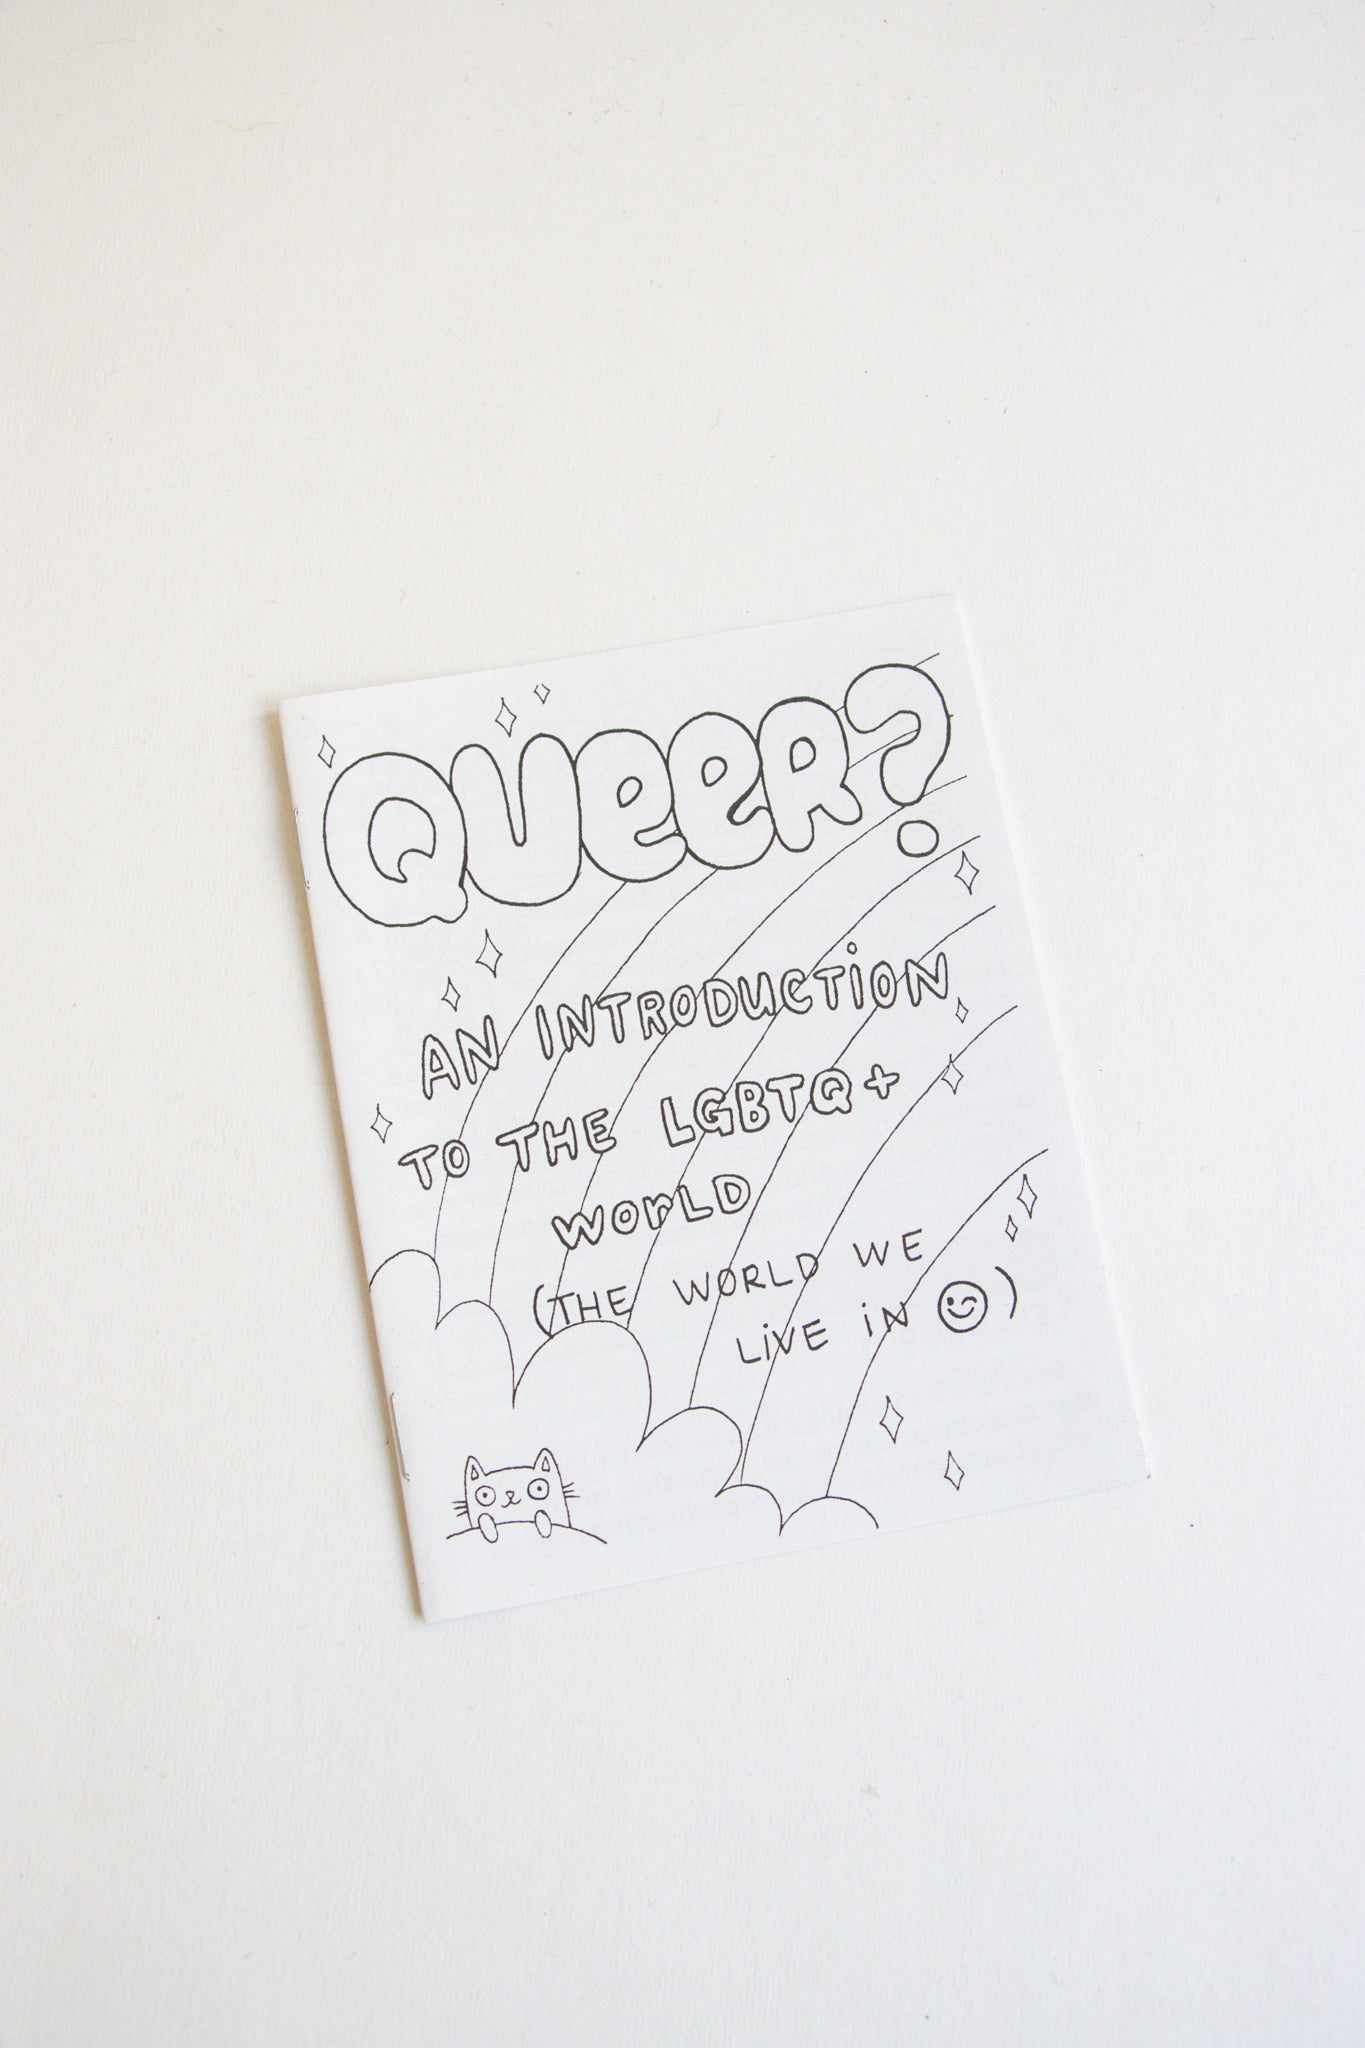 QUEER?
AN INTRODUCTION
TO THE LGBTQ+
WORLD
(THE WORLD WE
LIVE IN 😉)